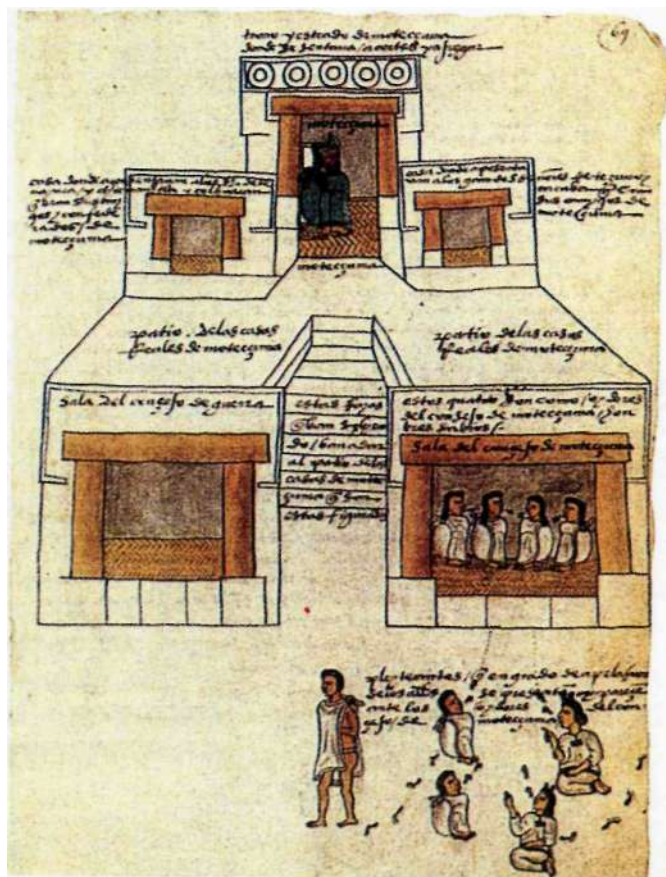 69
trono y estrado de motecçuma
donde se sentava a cortes y a juzgar
motecçuma
casa donde aposentavan a los
y
que eran sus
amigos y confede
rados de
motecçuma
casa donde aposenta
van a los grandes señores de tezcuco
y tacuba que eran
sus amigos de
motecçuma
motecçuma
patio de las casas
reales de motecçuma
patio de las casas
reales de motecçuma
sala del consejo de guerra
estas rayas
que van subien
do van a dar
al patio de las
casas de motec
çuma que son
estas figuradas
estos quatro son como oydores
del consejo de motecçuma hom
bres sabios
sala del consejo de motecçuma
pleyteantes que en grado de apelaçion
de los alcaldes se presentan y pareçen
ante los oydores del con
sejo de motecçuma